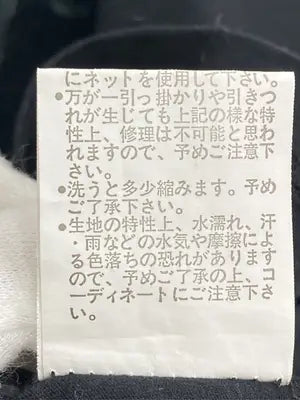 にネットを使用して下さい。
●万が一引っ掛かりや引きつ
れが生じても上記の様な特
性上、修理は不可能と思わ
れますので、予めご注意下
さい。
●洗うと多少縮みます。予め
ご了承下さい。
●生地の特性上、水濡れ、汗
・雨などの水気や摩擦によ
る色落ちの恐れがあります
ので、予めご了承の上、コ
ーディネートにご注意下さ
い。